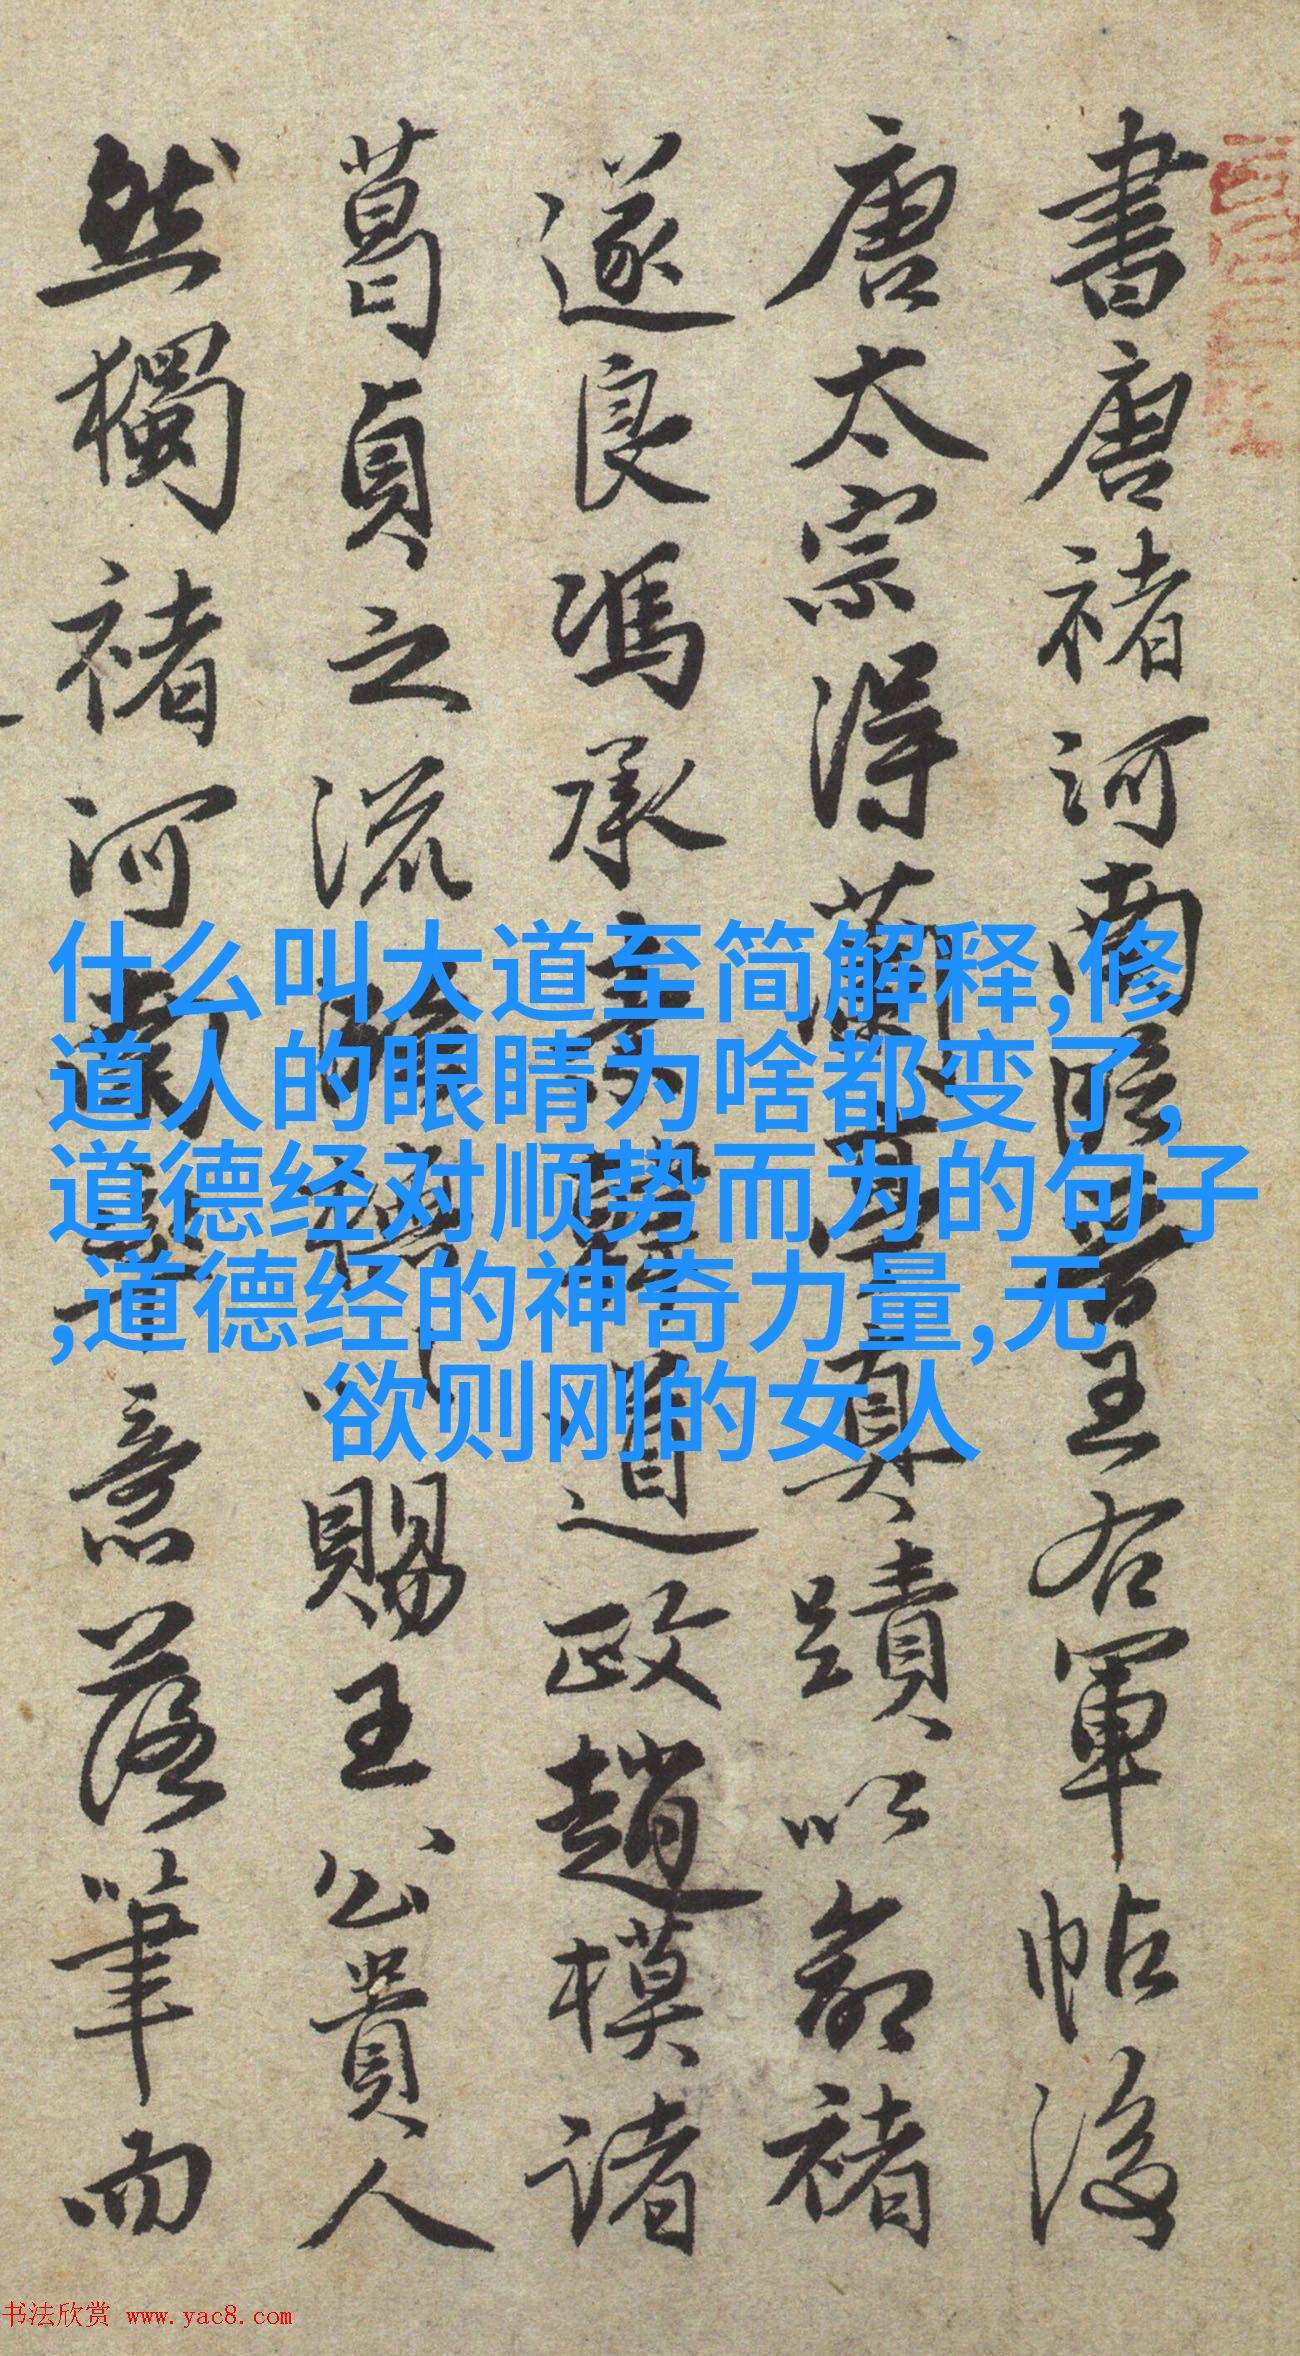 書唐褚河南臨晉王右軍帖後
唐太宗得蘭亭真蹟以命褚
遂良馮承素韓道政趙模諸
葛貞之流以賜王公貴人
然獨褚河南意落筆而
什么叫大道至简解释,修
道人的眼睛为啥都变了,
道德经对顺势而为的句子
,道德经的神奇力量,无
欲则刚的女人
书法欣赏 www.yac8.com